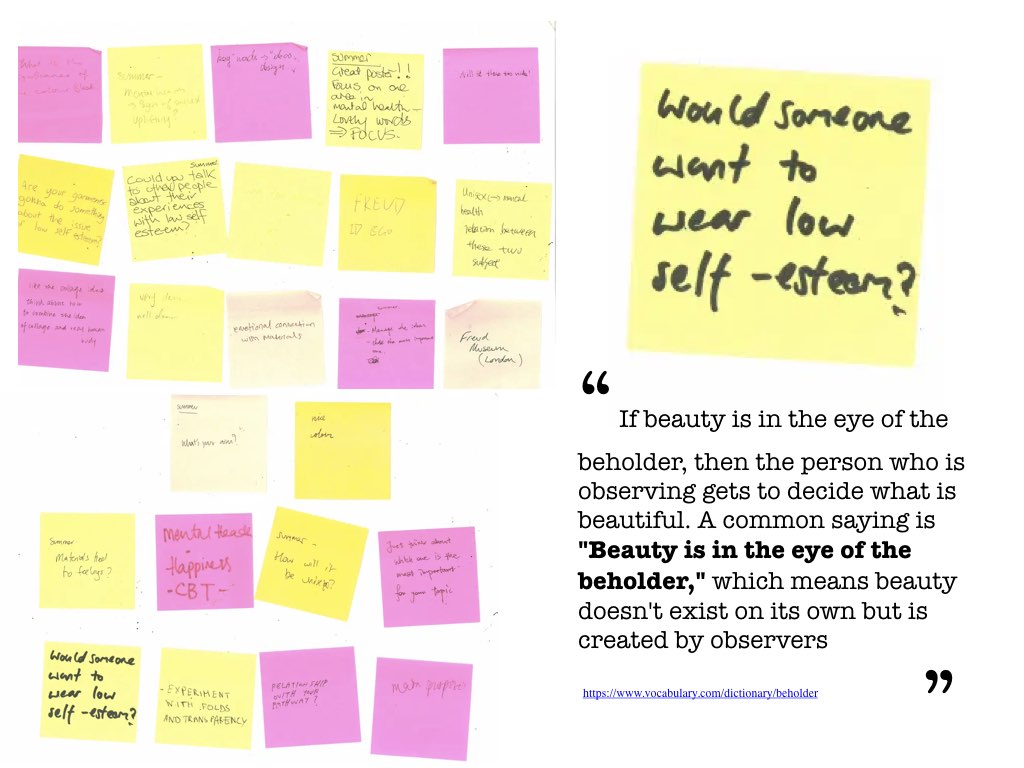 What is the
significance of
the colour
Summer -
Mental
uplifting?
key words → "deos
designs
Summer
Great poster!!
Focus on one
area in
mental health -
Lovely words
⇒ FOCUS.
Are your garments
gonna do something
about the issue
of low self esteem?
Summer
Could you talk
to other people
about their
experiences
with low self
esteem?
FREUD
ID EGO
Unisex ↔ mental
health
relation between
these two
subject
like the collage idea
think about how
to combine the idea
of collage and real human
body
very
well done
emotional connection
with materials
Summer
- Manage the ideas
- the most important
one.
Freud
Museum
(London)
Summer
What's your aim?
nice
colour
Summer
Materials feel
to feelings?
Mental Health
-
Happiness
-CBT-
Summer -
How will it
be unisex?
Just think about
which one is the
most important
for your topic
Would someone
want to
wear low
self-esteem?
- EXPERIMENT
WITH FOLDS
AND TRANSPARENCY
RELATIONSHIP
WITH YOUR
PATHWAY?
main purpose
Would someone
want to
wear low
self-esteem?
“
If beauty is in the eye of the
beholder, then the person who is
observing gets to decide what is
beautiful. A common saying is
"Beauty is in the eye of the
beholder," which means beauty
doesn't exist on its own but is
created by observers
”
https://www.vocabulary.com/dictionary/beholder